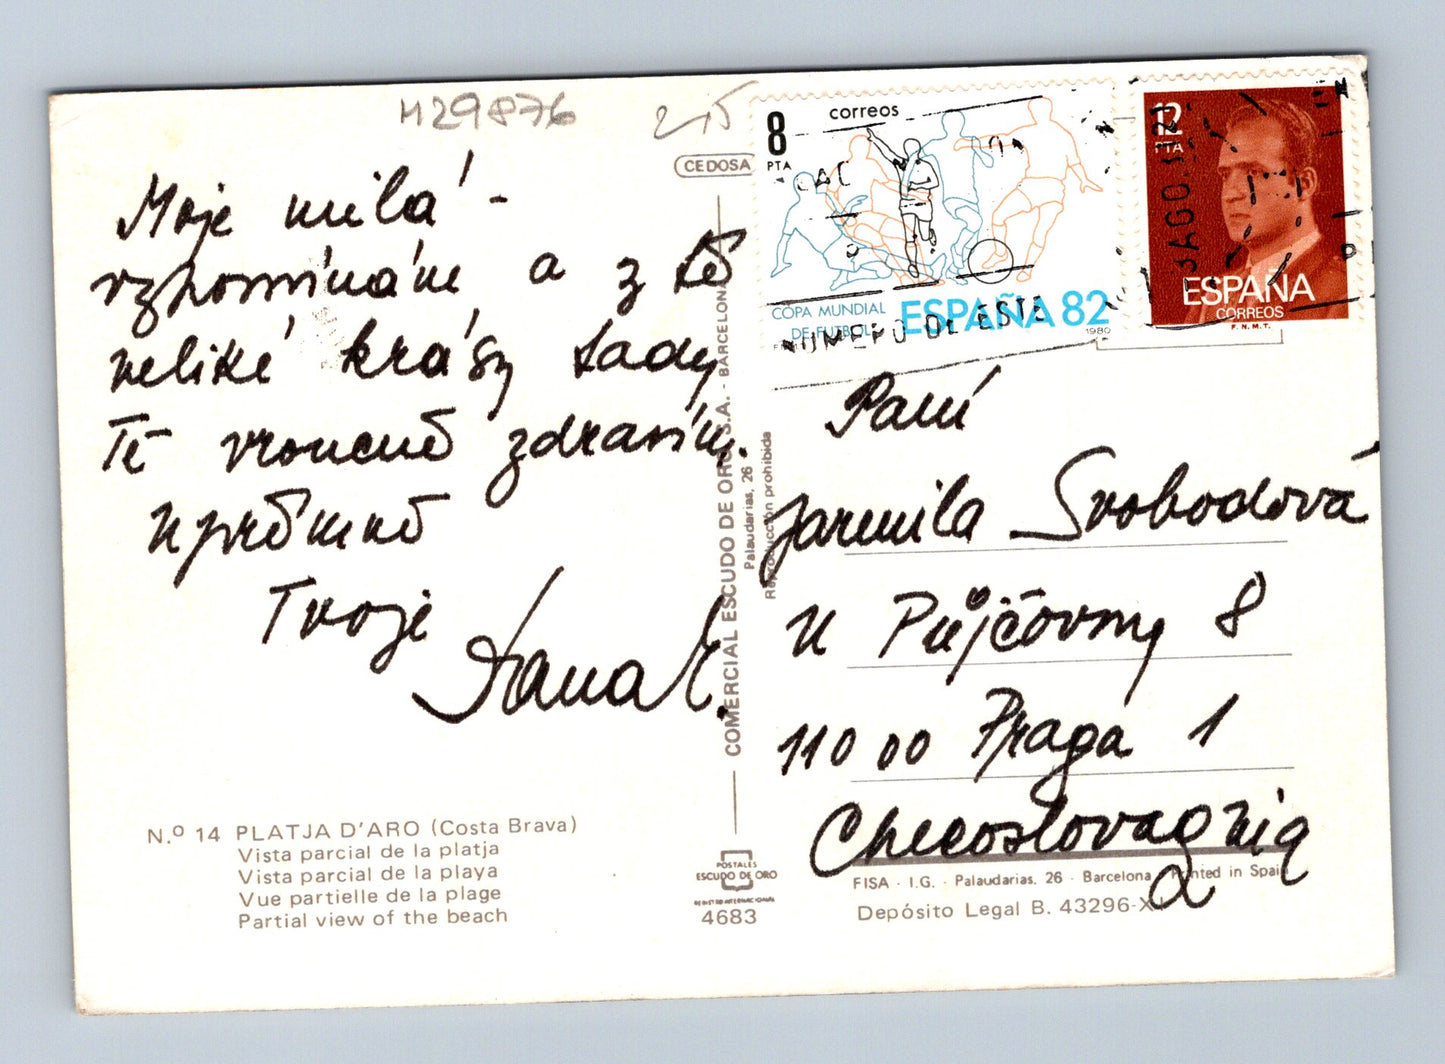 H29876
CEDOSA
Moje milá -
vzpomínám a z té
veliké krásy tady
Tě vroucně zdravím.
upřímně
Tvoje
Hana
N.º 14 PLATJA D'ARO (Costa Brava)
Vista parcial de la platja
Vista parcial de la playa
Vue partielle de la plage
Partial view of the beach
COMERCIAL ESCUDO DE ORO, S.A. - BARCELONA
Palaudarias, 26
Reproducción prohibida
POSTALES
ESCUDO DE ORO
4683
8
PTA
correos
COPA MUNDIAL
DE FUTBOL
ESPAÑA 82
1980
12
PTA
ESPAÑA
CORREOS
F.N.M.T.
AGO.
NUMERO DE ESTE
Paní
Jarmila Svobodová
U Půjčovny 8
110 00 Praga 1
Checoslovaquia
FISA - I.G. - Palaudarias, 26 - Barcelona Printed in Spain
Depósito Legal B. 43296-X